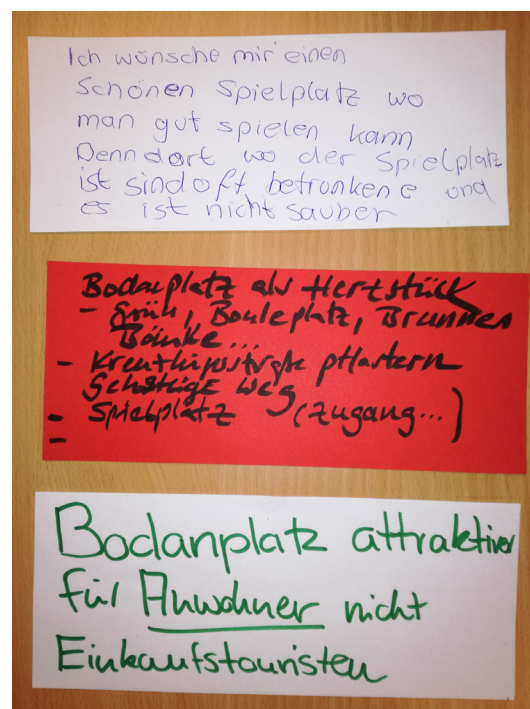 Ich wünsche mir einen
Schönen Spielplatz wo
man gut spielen kann
Denn dort wo der Spielplatz
ist sind oft betrunkene und
es ist nicht sauber
Bodanplatz als Herzstück
- Grün, Bouleplatz, Brunnen
Bänke...
- Kreuzlingerstraße pflastern
Gehsteige weg
- Spielplatz (Zugang...)
-
Bodanplatz attraktiver
für Anwohner nicht
Einkaufstouristen